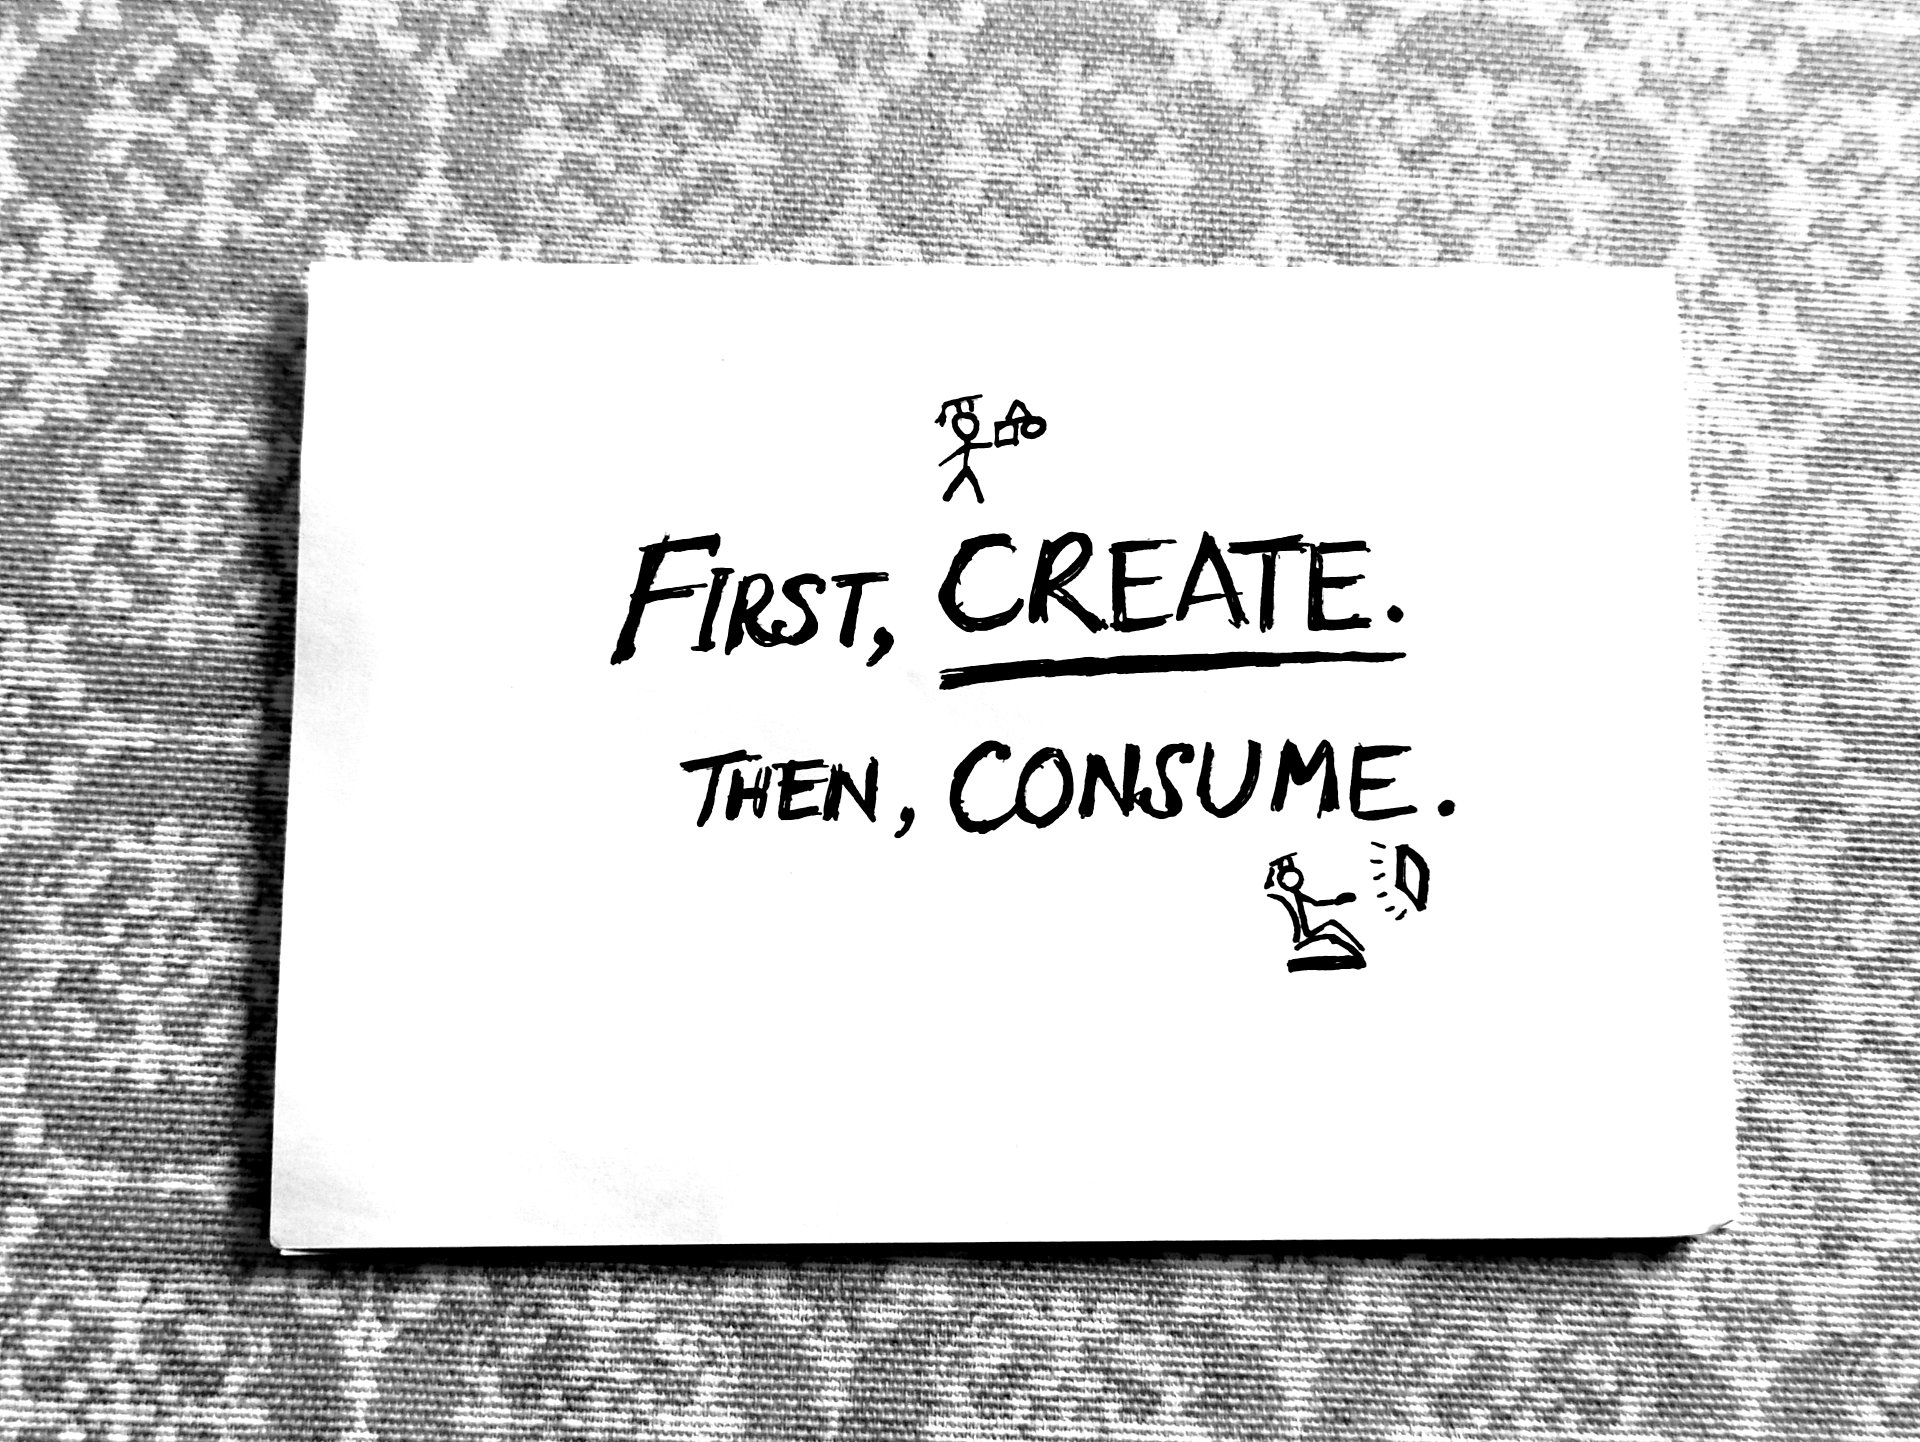 FIRST, CREATE.
THEN, CONSUME.